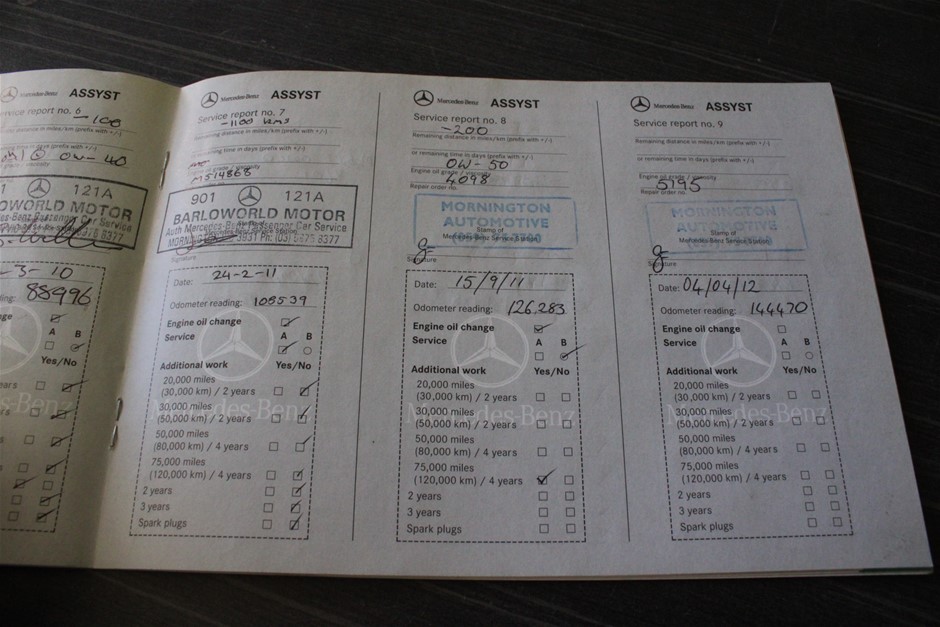 ASSYST
Service report no. 6
-100
0W-40
121A
BARLOWORLD MOTOR
-3-10
88996
A B
Yes/No
Mercedes-Benz ASSYST
Service report no. 7
-1100 kms
Remaining distance in miles/km (prefix with +/-)
M514868
901 121A
BARLOWORLD MOTOR
Auth Mercedes-Benz Passenger Car Service
Signature
Date: 24-2-11
Odometer reading: 105539
Engine oil change
Service A B
Additional work Yes/No
20,000 miles
(30,000 km) / 2 years
30,000 miles
(50,000 km) / 2 years
50,000 miles
(80,000 km) / 4 years
75,000 miles
(120,000 km) / 4 years
2 years
3 years
Spark plugs
Mercedes-Benz ASSYST
Service report no. 8
-200
Remaining distance in miles/km (prefix with +/-)
or remaining time in days (prefix with +/-)
0W-50
Engine oil grade / viscosity
4098
Repair order no.
MORNINGTON
AUTOMOTIVE
Stamp of
Mercedes-Benz Service Station
Signature
Date: 15/9/11
Odometer reading: 126,283
Engine oil change
Service A B
Additional work Yes/No
20,000 miles
(30,000 km) / 2 years
30,000 miles
(50,000 km) / 2 years
50,000 miles
(80,000 km) / 4 years
75,000 miles
(120,000 km) / 4 years
2 years
3 years
Spark plugs
Mercedes-Benz ASSYST
Service report no. 9
Remaining distance in miles/km (prefix with +/-)
or remaining time in days (prefix with +/-)
Engine oil grade / viscosity
5195
Repair order no.
MORNINGTON
AUTOMOTIVE
Stamp of
Mercedes-Benz Service Station
Signature
Date: 04/04/12
Odometer reading: 144470
Engine oil change
Service A B
Additional work Yes/No
20,000 miles
(30,000 km) / 2 years
30,000 miles
(50,000 km) / 2 years
50,000 miles
(80,000 km) / 4 years
75,000 miles
(120,000 km) / 4 years
2 years
3 years
Spark plugs